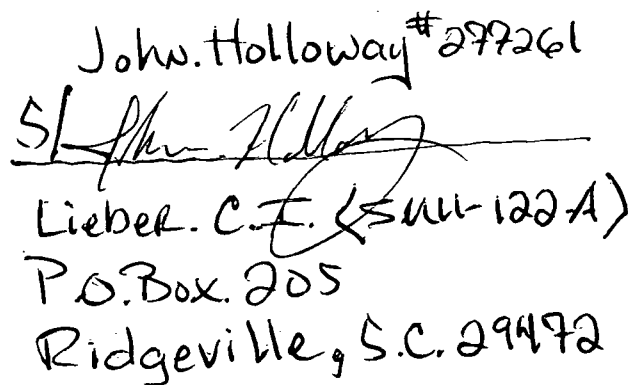 John. Holloway #277261
S/ John. Holloway
Lieber. C.I. (SMU-122-A)
P.O. Box. 205
Ridgeville, S.C. 29472